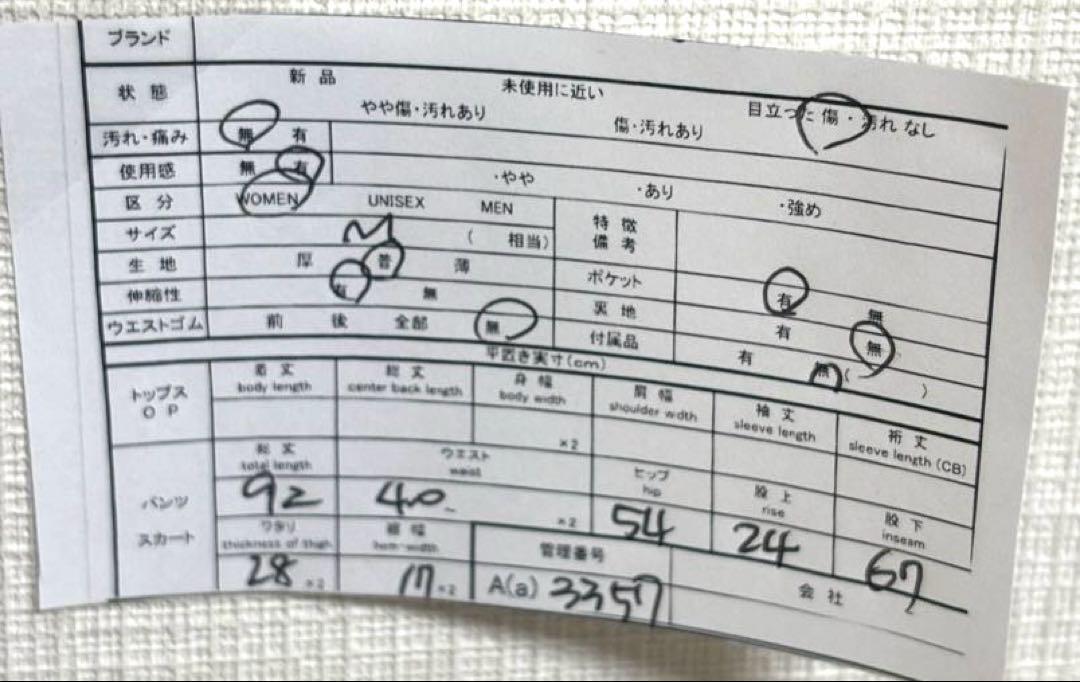 ブランド
状態 新品 未使用に近い 目立った傷・汚れなし
やや傷・汚れあり 傷・汚れあり
汚れ・痛み 無 有
使用感 無 有 ・やや ・あり ・強め
区分 WOMEN UNISEX MEN 特徴備考
サイズ M ( 相当)
生地 厚 普 薄 ポケット 有 無
伸縮性 有 無 裏地 有 無
ウエストゴム 前 後 全部 無 付属品 有 無 ( )
平置き実寸(cm)
トップス OP
着丈 body length
総丈 center back length
身幅 body width ×2
肩幅 shoulder width
袖丈 sleeve length
裄丈 sleeve length (CB)
パンツ スカート
総丈 total length 92
ウエスト waist 40 ×2
ヒップ hip 54
股上 rise 24
股下 inseam 67
ワタリ thickness of thigh 28 ×2
裾幅 hem width 17 ×2
管理番号 A(a) 3357
会社